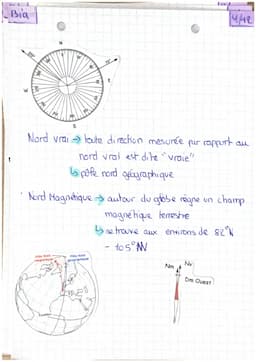 Bia
4/42
N
W
E
S
Nord vrai → toute direction mesurée par rapport au
nord vrai est dite "vraie"
↳ pôle nord géographique
Nord Magnétique → autour du globe règne un champ
magnétique terrestre
↳ se trouve aux environs de 82°N
- 105°W
Nm Nv
Dm Ouest